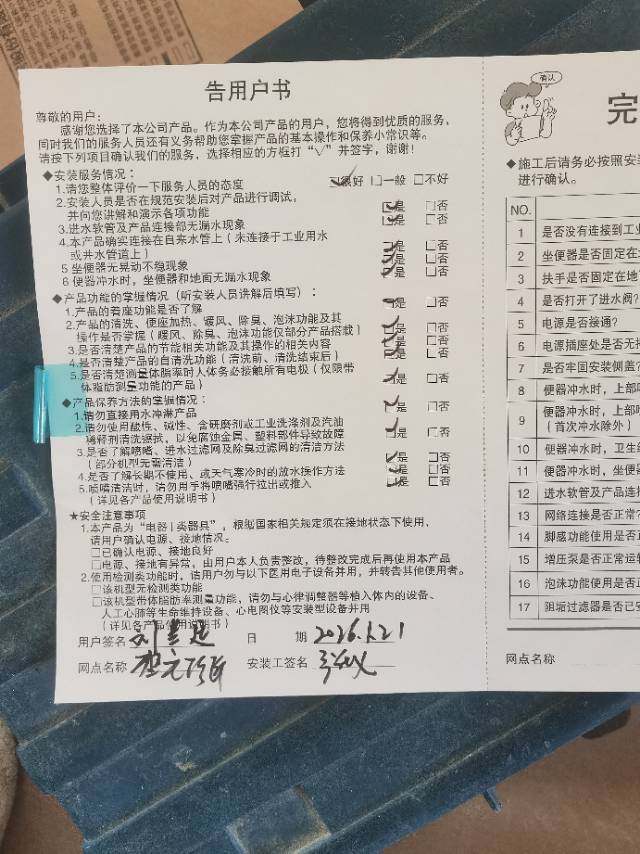 告用户书
尊敬的用户：
感谢您选择了本公司产品。作为本公司产品的用户，您将得到优质的服务，
同时我们的服务人员还有义务帮助您掌握产品的基本操作和保养小常识等。
请按下列项目确认我们的服务，选择相应的方框打“√”并签字，谢谢！
◆安装服务情况：
1.请您整体评价一下服务人员的态度 ☑很好 □一般 □不好
2.安装人员是否在规范安装后对产品进行调试，
并向您讲解和演示各项功能 ☑是 □否
3.进水软管及产品连接部无漏水现象 ☑是 □否
4.本产品确实连接在自来水管上（未连接于工业用水
或井水管道上） ☑是 □否
5 坐便器无晃动不稳现象 ☑是 □否
6 便器冲水时，坐便器和地面无漏水现象 ☑是 □否
◆产品功能的掌握情况（听安装人员讲解后填写）：
1.产品的着座功能是否了解 ☑是 □否
2.产品的清洗、便座加热、暖风、除臭、泡沫功能及其
操作是否掌握（暖风、除臭、泡沫功能仅部分产品搭载） ☑是 □否
3.是否清楚产品的节能相关功能及其操作的相关内容 ☑是 □否
4.是否清楚产品的自清洗功能（清洗前、清洗结束后） ☑是 □否
5.是否清楚测量体脂率时人体务必接触所有电极（仅限带
体脂肪测量功能的产品） ☑是 □否
◆产品保养方法的掌握情况：
1.请勿直接用水冲淋产品 ☑是 □否
2.请勿使用酸性、碱性、含研磨剂或工业洗涤剂及汽油
稀释剂清洗擦拭，以免腐蚀金属、塑料部件导致故障 ☑是 □否
3.是否了解喷嘴、进水过滤网及除臭过滤网的清洁方法
（部分机型无需清洁） ☑是 □否
4.是否了解长期不使用、或天气寒冷时的放水操作方法 ☑是 □否
5.喷嘴清洁时，请勿用手将喷嘴强行拉出或推入 ☑是 □否
（详见各产品使用说明书）
★安全注意事项
1.本产品为“电器Ⅰ类器具”，根据国家相关规定须在接地状态下使用，
请用户确认电源、接地情况。
□已确认电源、接地良好
□电源、接地有异常，由用户本人负责整改，待整改完成后再使用本产品
2.使用检测类功能时，请用户勿与以下医用电子设备并用，并转告其他使用者。
□该机型无检测类功能
□该机型带体脂肪率测量功能，请勿与心律调整器等植入体内的设备、
人工心肺等生命维持设备、心电图仪等安装型设备并用
（详见各产品使用说明书）
用户签名 日 期 2026.1.21
网点名称 安装工签名
确认
完
◆施工后请务必按照安装
进行确认。
NO.
1 是否没有连接到工业
2 坐便器是否固定在地
3 扶手是否固定在地
4 是否打开了进水阀？
5 电源是否接通？
6 电源插座处是否无
7 是否牢固安装侧盖？
8 便器冲水时，上部
9 便器冲水时，上部
（首次冲水除外）
10 便器冲水时，卫生
11 便器冲水时，坐便器
12 进水软管及产品连接
13 网络连接是否正常？
14 脚感功能使用是否正
15 增压泵是否正常运
16 泡沫功能使用是否正
17 阻垢过滤器是否已安
网点名称